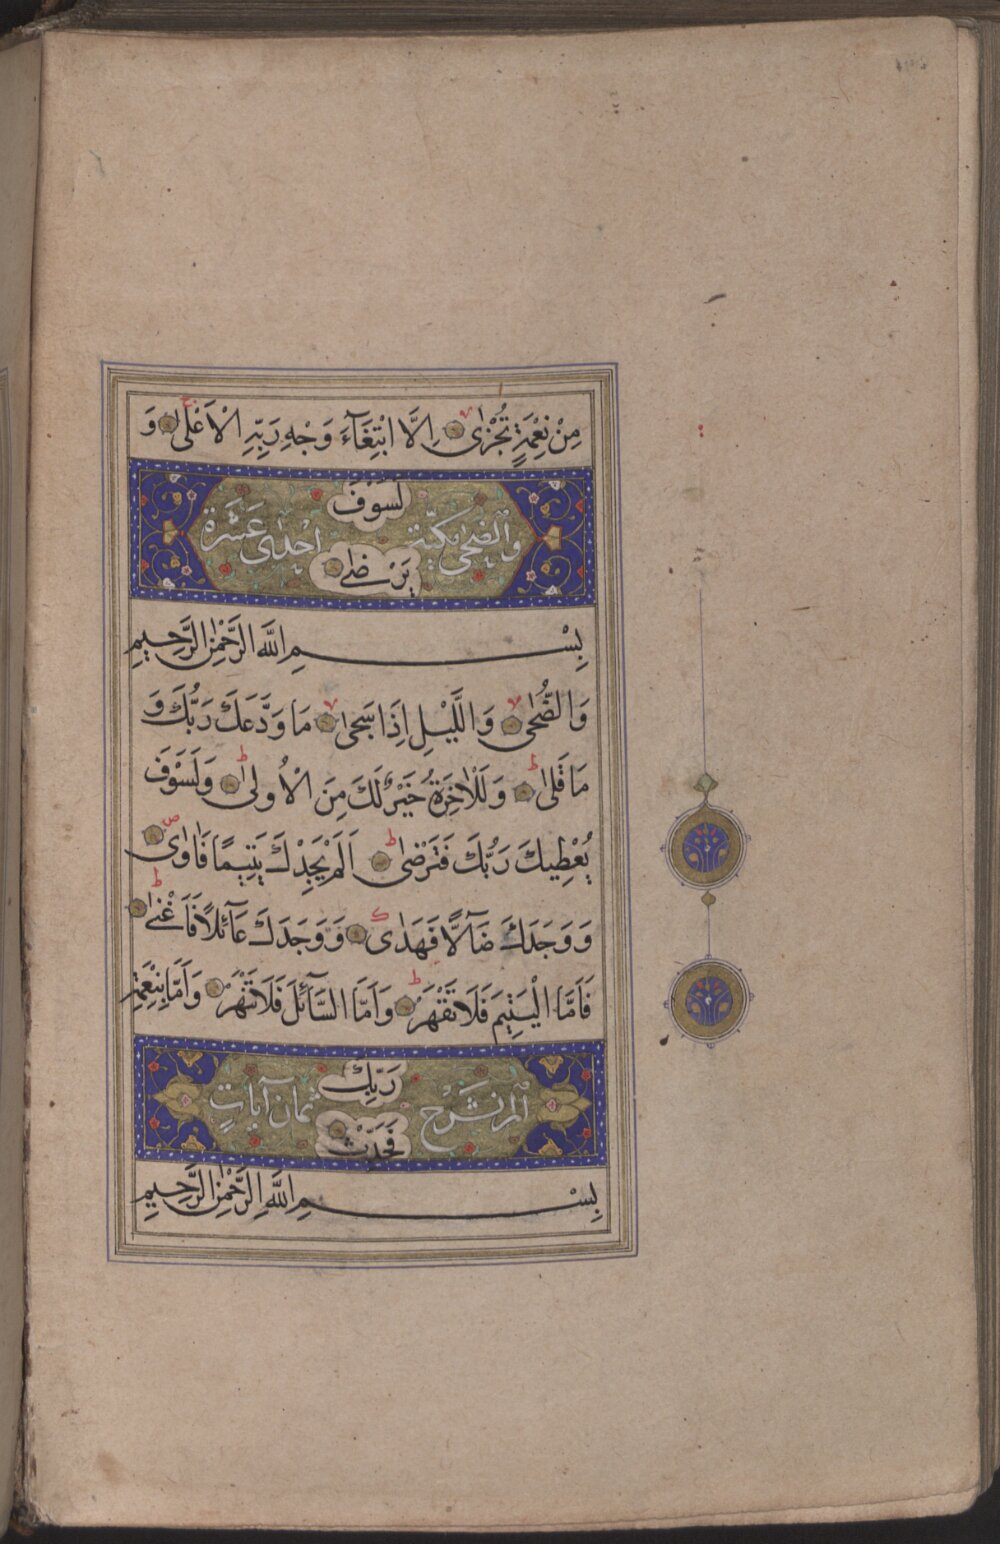 مِنْ نِعْمَةٍ تُجْزٰى اِلَّا ابْتِغَآءَ وَجْهِ رَبِّهِ الْاَعْلٰى وَ
لَسَوْفَ
والضحى مكية احدى عشرة
يَرْضٰى
بِسْمِ اللّٰهِ الرَّحْمٰنِ الرَّحِيمِ
وَالضُّحٰى وَالَّيْلِ اِذَا سَجٰى مَا وَدَّعَكَ رَبُّكَ وَ
مَا قَلٰى وَلَلْاٰخِرَةُ خَيْرٌ لَكَ مِنَ الْاُولٰى وَلَسَوْفَ
يُعْطِيكَ رَبُّكَ فَتَرْضٰى اَلَمْ يَجِدْكَ يَتِيمًا فَاٰوٰى
وَوَجَدَكَ ضَآلًّا فَهَدٰى وَوَجَدَكَ عَآئِلًا فَاَغْنٰى
فَاَمَّا الْيَتِيمَ فَلَا تَقْهَرْ وَاَمَّا السَّآئِلَ فَلَا تَنْهَرْ وَاَمَّا بِنِعْمَةِ
رَبِّكَ
الم نشرح ثمان آيات
فَحَدِّثْ
بِسْمِ اللّٰهِ الرَّحْمٰنِ الرَّحِيمِ